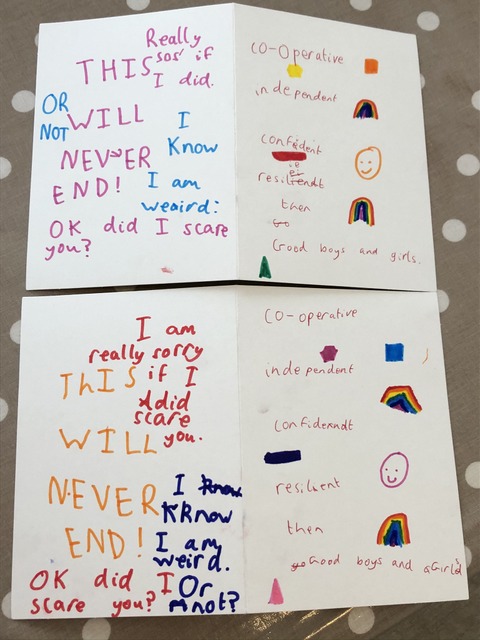 Really
sos' if
THIS I did.
OR
NOT WILL I
Know
NEVER
END! I am
weaird:
OK did I scare
you?
CO-Operative
independent
confident
then
Good boys and girls.
I am
really sorry
ThIS if I
did
scare
WILL you.
NEVER I know
KRnow
END! I am
weird.
OK did I Or
scare you? not?
CO-operative
independent
confiderndt
resiluent
then
Good boys and